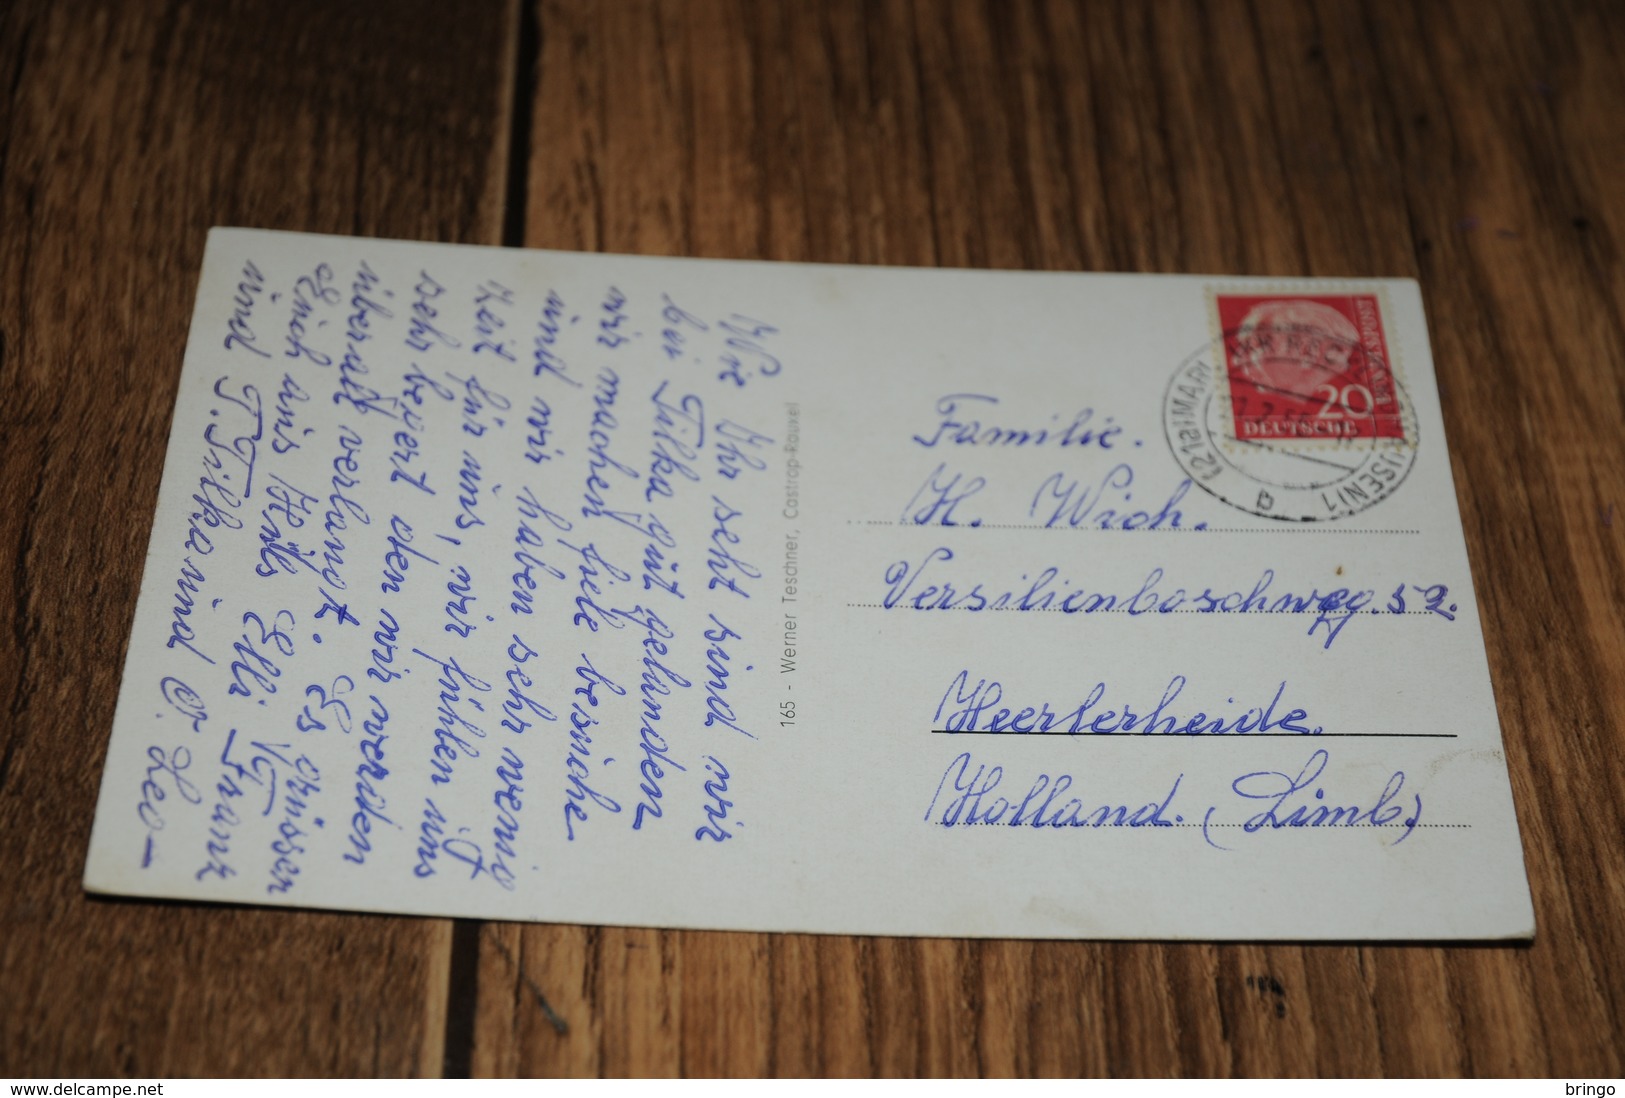 Wie Ihr seht sind wir
bei Tilka gut gelanden
wir machen fiele besuche
und wir haben sehr wenig
Zeit für uns, wir fühlen uns
sehr
überall verlangt. Es
Euch aus Köls Elli Frank
und T. Tilka und O. Leo—
165 - Werner Teschner, Castrop-Rauxel
20
DEUTSCHE
BUNDESPOST
Familie.
H. Wich.
Versilienboschweg. 52.
Heerlerheide.
Holland. (Limb.)
www.delcampe.net
bringo